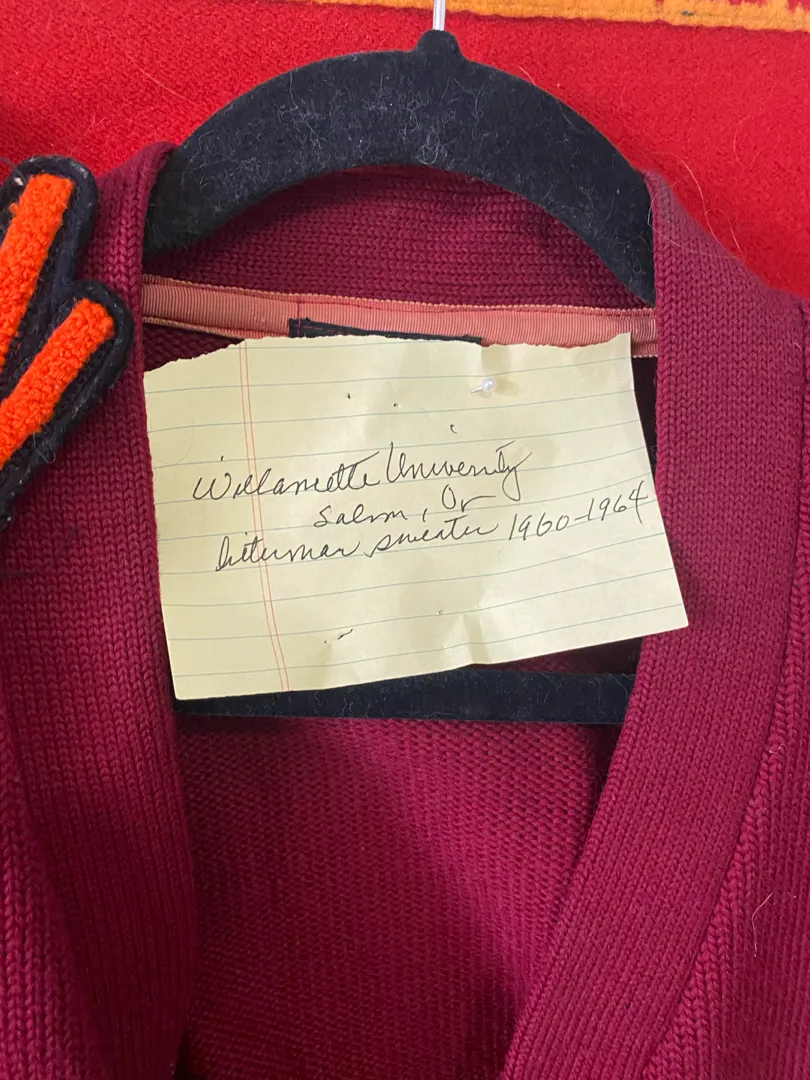 Willamette University
Salem, Or
letterman sweater 1960-1964